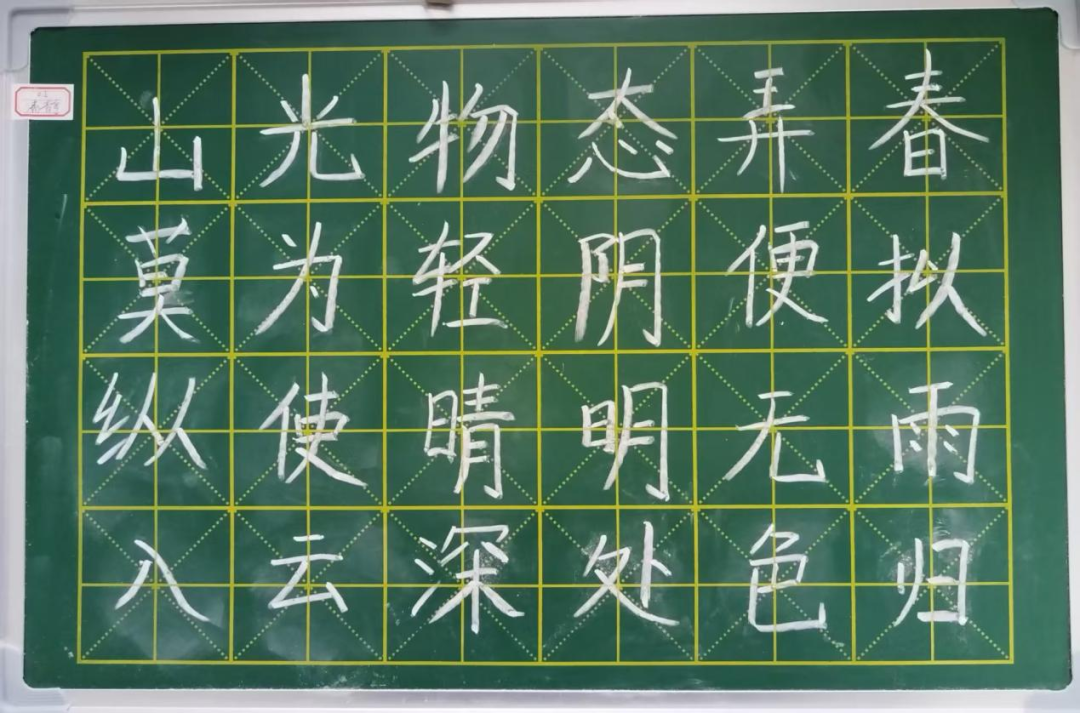 山光物态弄春
莫为轻阴便拟
纵使晴明无雨
入云深处色归